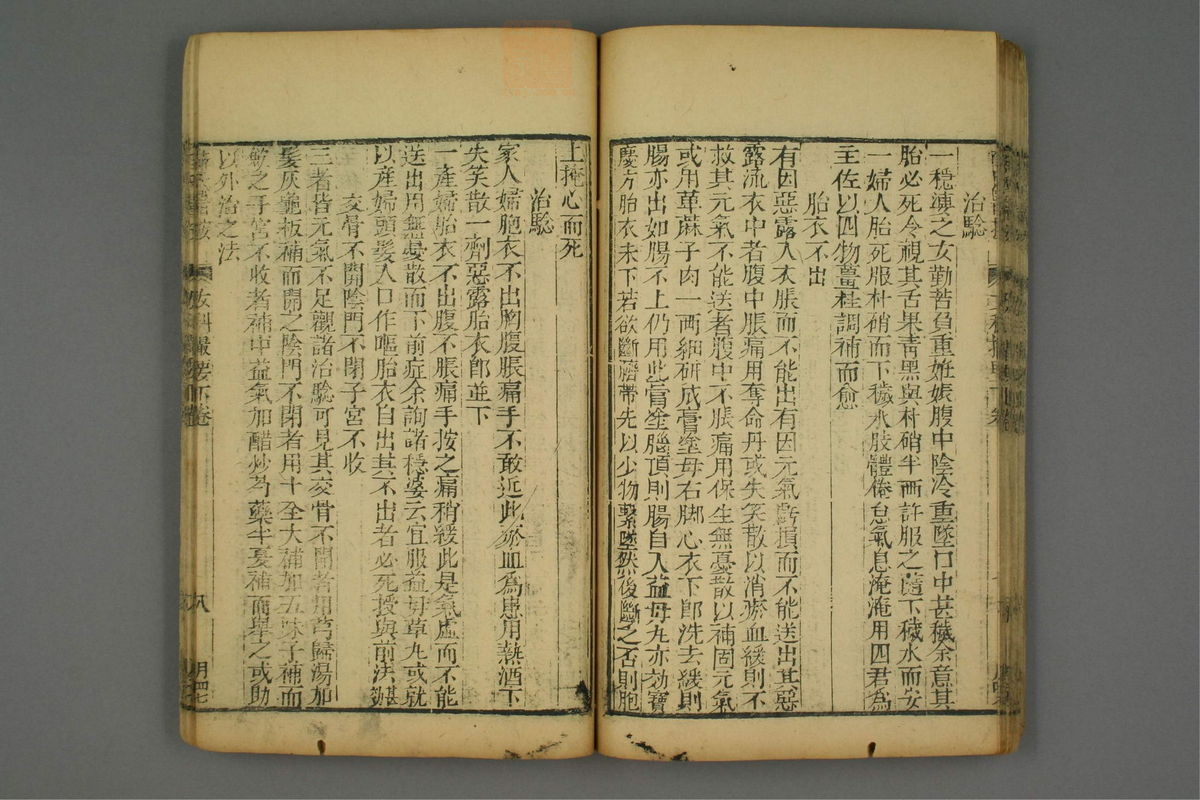 治驗
一穩凍之女勤苦負重姙娠腹中陰冷重墜口中甚穢余意其
胎必死令視其舌果青黑與朴硝半兩許服之隨下穢水而安
一婦人胎死服朴硝而下穢水肢體倦怠氣息淹淹用四君為
主佐以四物薑桂調補而愈
胎衣不出
有因惡露入衣脹而不能出有因元氣虧損而不能送出其惡
露流衣中者腹中脹痛用奪命丹或失笑散以消瘀血緩則不
救其元氣不能送者腹中不脹痛用保生無憂散以補固元氣
或用萆蔴子肉一兩細研成膏塗母右脚心衣下卽洗去緩則
腸亦出如腸不上仍用此膏塗腦頂則腸自入益母丸亦効寶
慶方胎衣未下若欲斷臍帶先以少物繫墜然後斷之否則胞
上掩心而死
治驗
家人婦胞衣不出胸腹脹痛手不敢近此瘀血為患用熱酒下
失笑散一劑惡露胎衣卽並下
一產婦胎衣不出腹不脹痛手按之痛稍緩此是氣虛而不能
送出用無憂散而下前症余詢諸穩婆云宜服益母草丸或就
以產婦頭髮入口作嘔胎衣自出其不出者必死授與前法甚
交骨不開陰門不閉子宮不收
三者皆元氣不足觀諸治驗可見其交骨不開者用芎歸湯加
髮灰龜板補而開之陰門不閉者用十全大補加五味子補而
斂之子宮不收者補中益氣加醋炒芍藥半夏補而舉之或助
以外治之法
女科撮要下卷
八